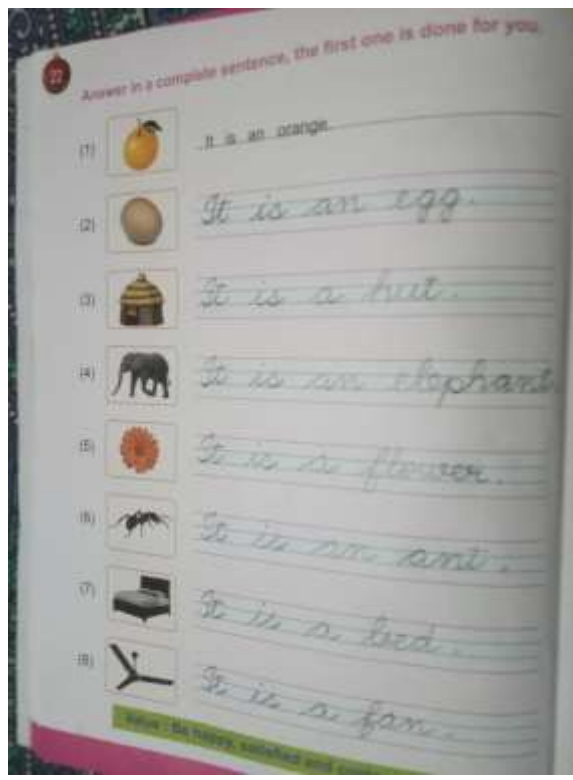 22
Answer in a complete sentence, the first one is done for you.
(1) It is an orange.
(2) It is an egg.
(3) It is a hut.
(4) It is an elephant
(5) It is a flower.
(6) It is an ant.
(7) It is a bed.
(8) It is a fan.
Value : Be happy, satisfied and